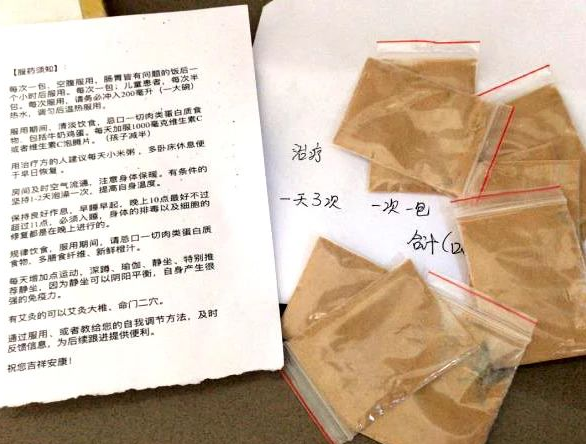 【服药须知】：
每次一包，空腹服用，肠胃皆有问题的饭后一
个小时后服用。每次一包，儿童患者，每次半
包。每次服用，请务必冲入200毫升（一大碗）
热水，调匀后温热服用。
服用期间，清淡饮食，忌口一切肉类蛋白质食
物，包括牛奶鸡蛋。每天加服1000毫克维生素C
或者维生素C泡腾片。（孩子减半）
用治疗方的人建议每天小米粥，多卧床休息便
于早日恢复。
房间及时空气流通，注意身体保暖。有条件的
坚持1-2天泡澡一次，提高自身温度。
保持良好作息，早睡早起，晚上10点最好不过
超过11点，必须入睡，身体的排毒以及细胞的
修复都是在晚上进行的。
规律饮食，服用期间，请忌口一切肉类蛋白质
食物，多膳食纤维、新鲜橙汁。
每天增加点运动，深蹲、瑜伽、静坐、特别推
荐静坐，因为静坐可以阴阳平衡，自身产生很
强的免疫力。
有艾灸的可以艾灸大椎、命门二穴。
通过服用、或者教给您的自我调节方法，及时
反馈信息，为后续跟进提供便利。
祝您吉祥安康！
治疗
一天3次 一次一包
合计(12